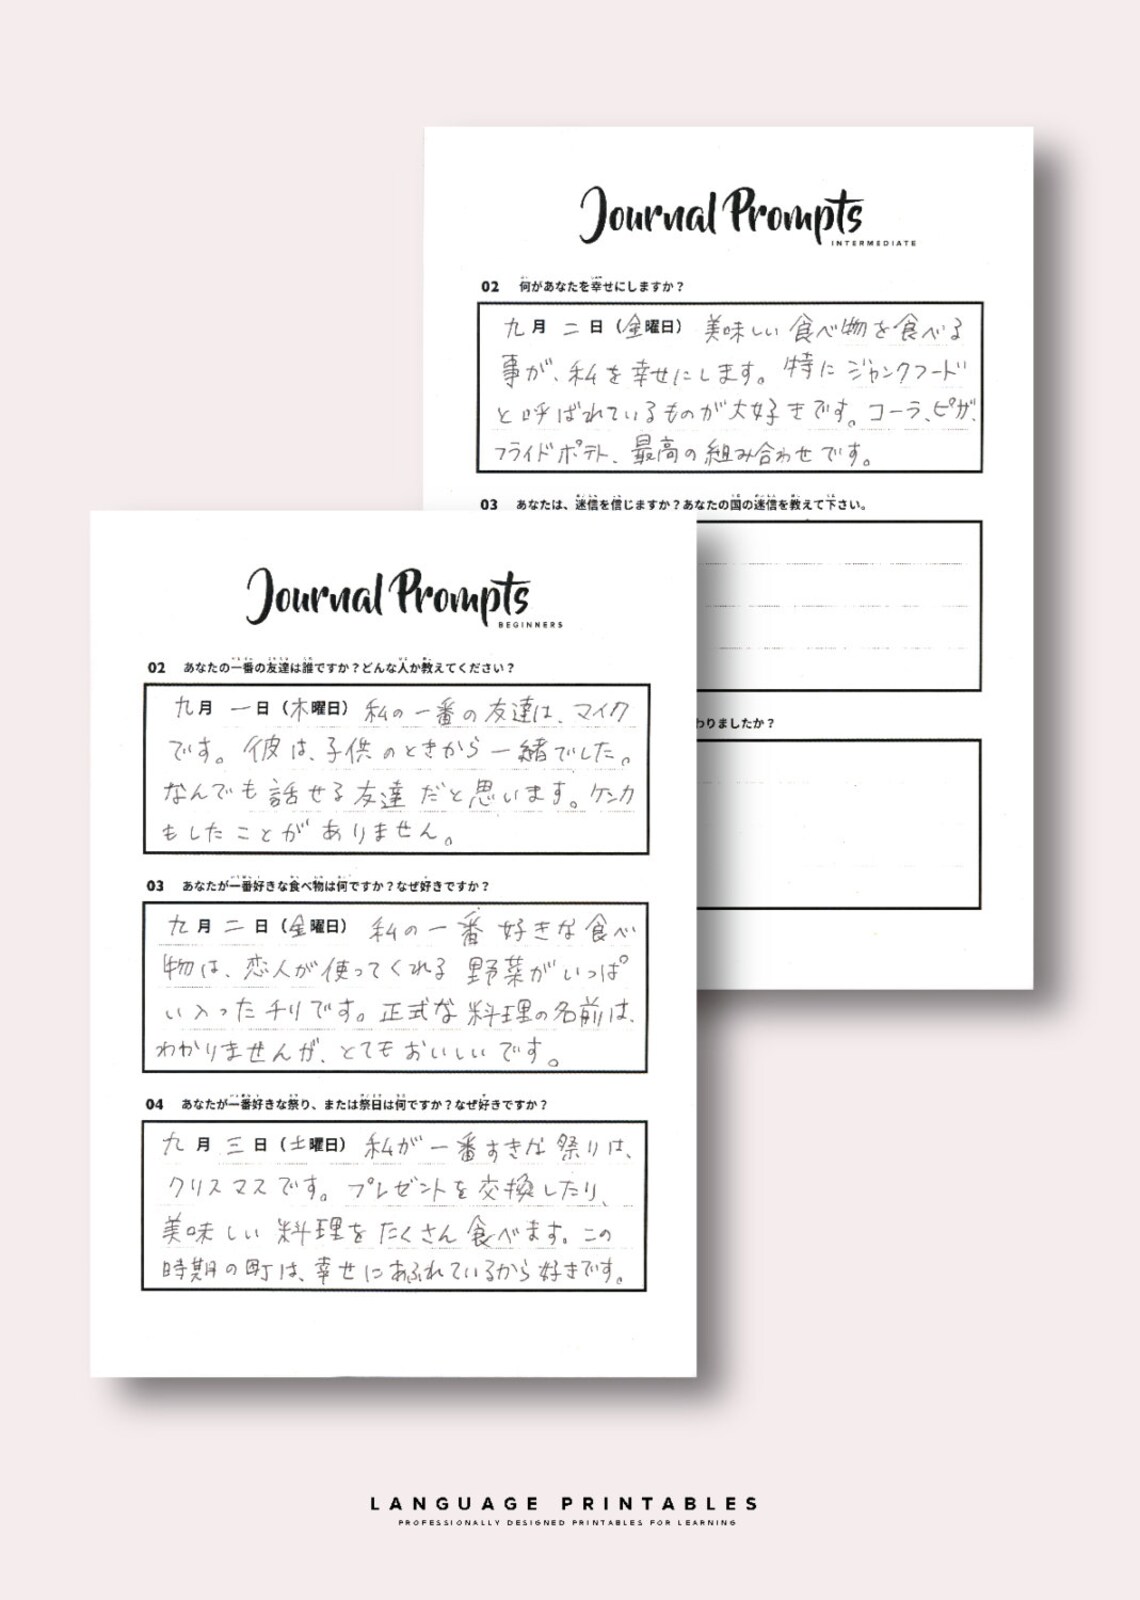 Journal Prompts
INTERMEDIATE
02 何があなたを幸せにしますか？
九月二日（金曜日） 美味しい食べ物を食べる
事が、私を幸せにします。特にジャンクフード
と呼ばれているものが大好きです。コーラ、ピザ、
フライドポテト、最高の組み合わせです。
03 あなたは、迷信を信じますか？あなたの国の迷信を教えて下さい。
わりましたか？
Journal Prompts
BEGINNERS
02 あなたの一番の友達は誰ですか？どんな人か教えてください？
九月一日（木曜日） 私の一番の友達は、マイク
です。彼は、子供のときから一緒でした。
なんでも話せる友達だと思います。ケンカ
もしたことがありません。
03 あなたが一番好きな食べ物は何ですか？なぜ好きですか？
九月二日（金曜日） 私の一番好きな食べ
物は、恋人が使ってくれる野菜がいっぱ
い入ったチリです。正式な料理の名前は、
わかりませんが、とてもおいしいです。
04 あなたが一番好きな祭り、または祭日は何ですか？なぜ好きですか？
九月三日（土曜日） 私が一番すきな祭りは、
クリスマスです。プレゼントを交換したり、
美味しい料理をたくさん食べます。この
時期の町は、幸せにあふれているから好きです。
LANGUAGE PRINTABLES
PROFESSIONALLY DESIGNED PRINTABLES FOR LEARNING